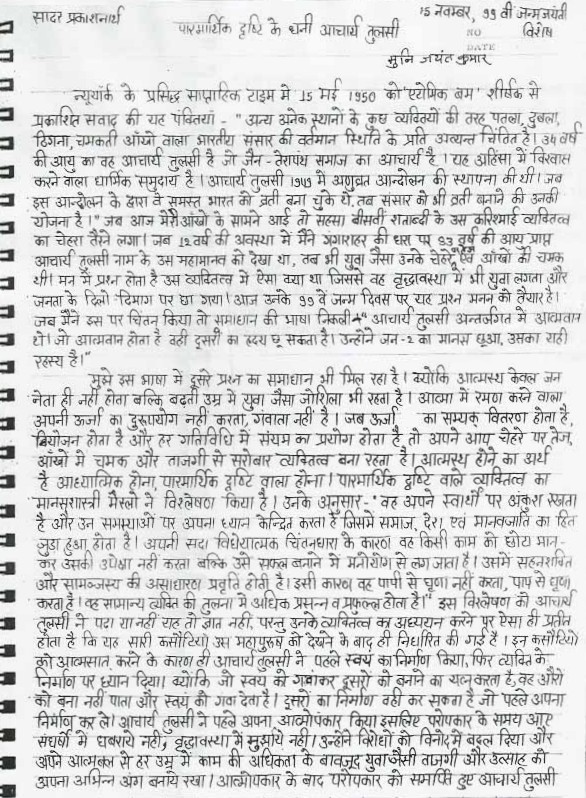 सादर प्रकाशनार्थ
15 नवम्बर, 99 वीं जन्मजयंती
पारमार्थिक दृष्टि के धनी आचार्य तुलसी
NO विशेष
DATE
मुनि जयंत कुमार
न्यूयार्क के प्रसिद्ध साप्ताहिक टाइम में 15 मई 1950 को 'एटोमिक बम' शीर्षक से
प्रकाशित संवाद की यह पंक्तियां - "अन्य अनेक स्थानों के कुछ व्यक्तियों की तरह पतला, दुबला,
ठिगना, चमकती आँखों वाला भारतीय संसार की वर्तमान स्थिति के प्रति अत्यन्त चिंतित है। 34 वर्ष
की आयु का वह आचार्य तुलसी है जो जैन - तेरापंथ समाज का आचार्य है। यह अहिंसा में विश्वास
करने वाला धार्मिक समुदाय है। आचार्य तुलसी 1949 में अणुव्रत आन्दोलन की स्थापना की थी। जब
इस आन्दोलन के द्वारा वे समस्त भारत को व्रती बना चुके थे, तब संसार को भी व्रती बनाने की उनकी
योजना है।" जब आज मेरी आंखों के सामने आई तो सहसा बीसवीं शताब्दी के उस करिश्माई व्यक्तित्व
का चेहरा तैरने लगा। जब 12 वर्ष की अवस्था में मैंने गंगाशहर की धरा पर 83 वर्ष की आयु प्राप्त
आचार्य तुलसी नाम के उस महामानव को देखा था, तब भी युवा जैसा उनके चेहरे एवं आंखों की चमक
थी। मन में प्रश्न होता है उस व्यक्तित्व में ऐसा क्या था जिससे वह वृद्धावस्था में भी युवा लगता और
जनता के दिलो दिमाग पर छा गया। आज उनके 99 वें जन्म दिवस पर यह प्रश्न मनन को तैयार है।
जब मैंने इस पर चिंतन किया तो समाधान की भाषा निकली "आचार्य तुलसी अन्तर्जगत में आत्मवान
थे। जो आत्मवान होता है वही दूसरों का हृदय छू सकता है। उन्होंने जन-2 का मानस छूआ, उसका यही
रहस्य है।"
मुझे इस भाषा में दूसरे प्रश्न का समाधान भी मिल रहा है। क्योंकि आत्मस्थ केवल जन
नेता ही नहीं होता बल्कि बढ़ती उम्र में युवा जैसा जोशिला भी रहता है। आत्मा में रमण करने वाला
अपनी ऊर्जा का दुरूपयोग नहीं करता, गंवाता नहीं है। जब ऊर्जा का सम्यक् वितरण होता है,
नियोजन होता है और हर गतिविधि में संयम का प्रयोग होता है, तो अपने आप चेहरे पर तेज,
आँखों में चमक और ताजगी से सरोबार व्यक्तित्व बना रहता है। आत्मस्थ होने का अर्थ
है आध्यात्मिक होना, पारमार्थिक दृष्टि वाला होना। पारमार्थिक दृष्टि वाले व्यक्तित्व का
मानसशास्त्री मैस्लो ने विश्लेषण किया है। उनके अनुसार - "वह अपने स्वार्थों पर अंकुश रखता
है और उन समस्याओं पर अपना ध्यान केन्द्रित करता है जिसमें समाज, देश, एवं मानवजाति का हित
जुड़ा हुआ होता है। अपनी सदा विधेयात्मक चिंतनधारा के कारण वह किसी काम को छोटा मान-
कर उसकी उपेक्षा नहीं करता बल्कि उसे सफल बनाने में मनोयोग से लग जाता है। उसमें सहनशक्ति
और सामञ्जस्य की असाधारण प्रवृति होती है। इसी कारण वह पापी से घृणा नहीं करता, पाप से घृणा
करता है। वह सामान्य व्यक्ति की तुलना में अधिक प्रसन्न व प्रफुल्ल होता है।" इस विश्लेषण को आचार्य
तुलसी ने पढा या नहीं यह तो ज्ञात नहीं, परन्तु उनके व्यक्तित्व का अध्ययन करने पर ऐसा ही प्रतीत
होता है कि यह सारी कसौटियां उस महापुरुष को देखने के बाद ही निर्धारित की गई है। इन कसौटियों
को आत्मसात् करने के कारण ही आचार्य तुलसी ने पहले स्वयं का निर्माण किया, फिर व्यक्ति के
निर्माण पर ध्यान दिया। क्योंकि जो स्वयं को गंवाकर दूसरों को बनाने का यत्न करता है, वह औरों
को बना नहीं पाता और स्वयं को गंवा देता है। दूसरों का निर्माण वही कर सकता है जो पहले अपना
निर्माण कर ले। आचार्य तुलसी ने पहले अपना आत्मोपकार किया इसलिए परोपकार के समय आए
संघर्षों में घबराये नहीं, वृद्धावस्था में मुर्झाये नहीं। उन्होंने विरोधों को विनोद में बदल दिया और
अपने आत्मबल से हर उम्र में काम की अधिकता के बावजूद युवा जैसी ताजगी और उत्साह को
अपना अभिन्न अंग बनाये रखा। आत्मोपकार के बाद परोपकार को समर्पित हुए आचार्य तुलसी